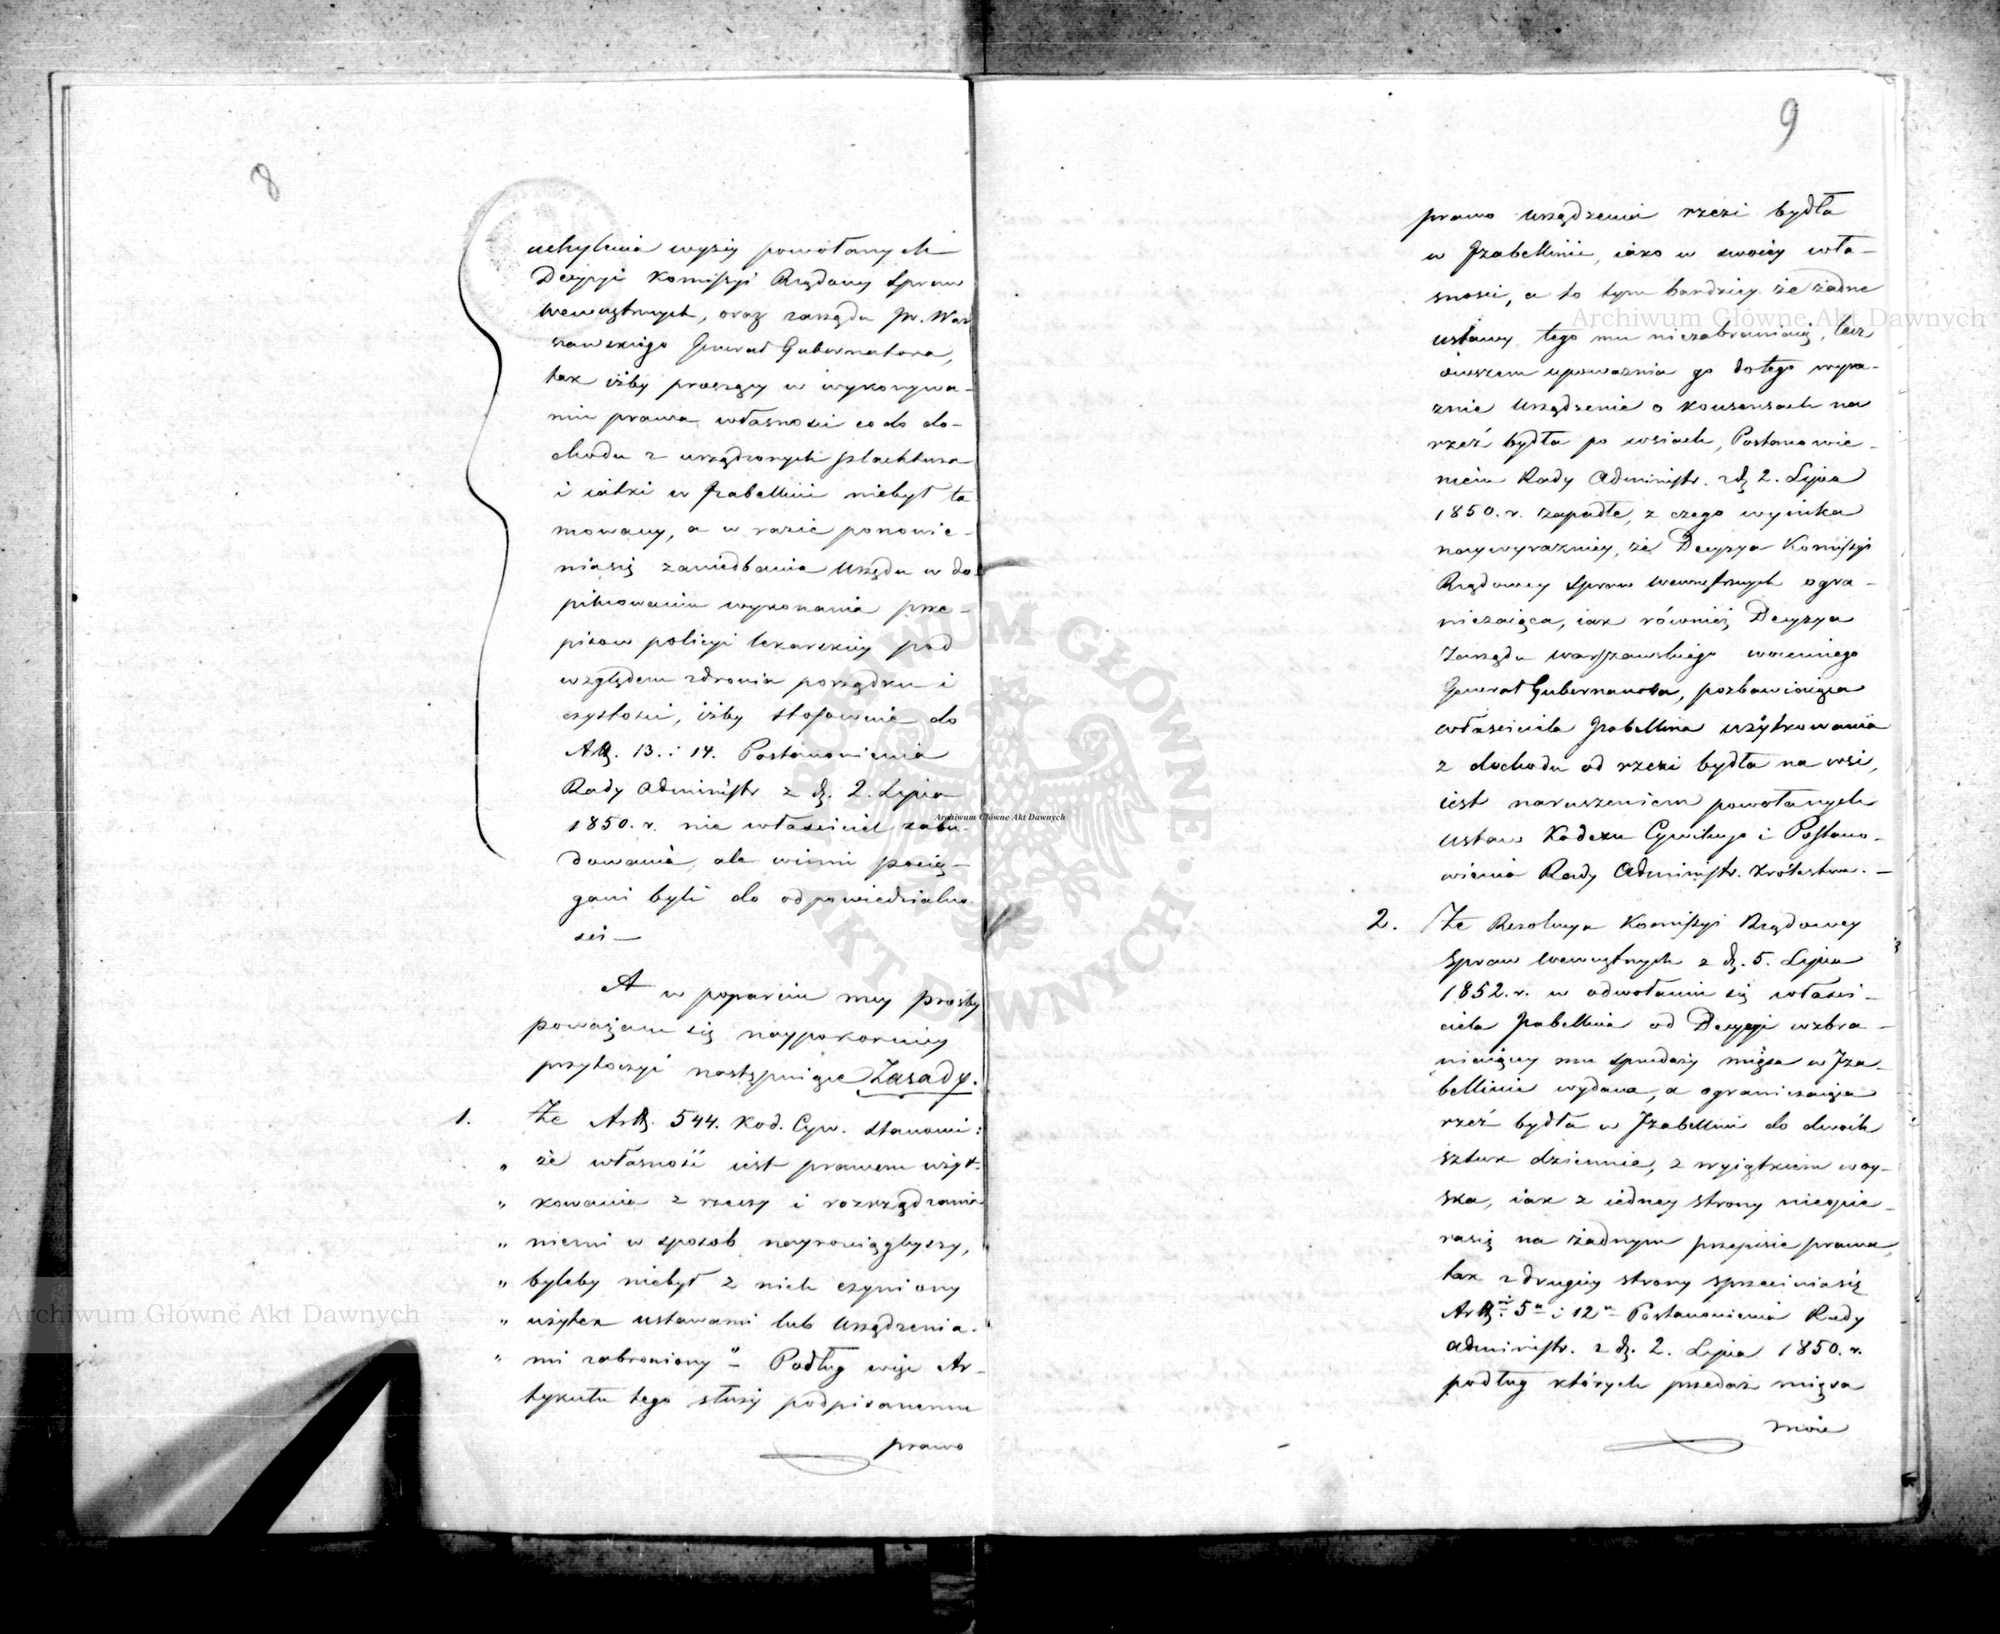 8
uchylenia wyżej powołanych
Decyzyi Kommissyi Rządowey Spraw
Wewnętrznych, oraz zarządu Jw. War
szawskiego Generał Gubernatora,
tak iżby proszący w wykonywa-
niu prawa własności co do do-
chodu z urządzonych szlachtuza
i iatki w Izabellinie niebył ta
mowany, a w razie ponowie-
niasię zaniedbania Urzędu w do
pilnowaniu wykonania prze-
pisow policyi lekarskiey pod
względem zdrowia porządku i
czystości, iżby stosownie do
Art. 13. i 14. Postanowienia
Rady Administr z d. 2. Lipca
1850. r. nie właściciel zabu-
dowania, ale winni pocią-
gani byli do odpowiedzialno-
ści —
A w poparciu mey prośby
poważam się naypokorniey
przytoczyć następuiące Zasady.
1. Że Art. 544. Kod. Cyw. stanowi:
„ że własność iest prawem użyt-
„ kowania z rzeczy i rozrządzania
„ niemi w sposób nayrozciągleyszy,
„ byleby niebył z nich czyniony
„ użytek ustawami lub Urządzenia-
„ mi zabroniony" — Podług więc Ar-
tykułu tego służy podpisanemu
prawo
9
prawo urządzenia rzezi bydła
w Izabellinie, iako w swoiey wła-
sności, a to tym bardziey że żadne
ustawy tego mu niezabraniaią, lecz
owszem upoważnia go dotego wyra-
źnie Urządzenie o konsensach na
rzeź bydła po wsiach, Postanowie-
niem Rady Administr. z d. 2. Lipca
1850. r. zapadłe, z czego wynika
naywyrazniey, że Decyzya Kommissyi
Rządowey Spraw Wewnętrznych ogra-
niczaiąca, iak również Decyzya
Zarządu Warszawskiego woiennego
Generał Gubernatora, pozbawiaiąca
właściciela Izabellina użytkowania
z dochodu od rzezi bydła na wsi,
iest naruszeniem powołanych
ustaw Kodexu Cywilnego i Postano-
wienia Rady Administr. Królestwa. —
2. Że Rezolucya Kommissyi Rządowey
Spraw Wewnętrznych z d. 5. Lipca
1852. r. w odwołaniu się właści-
ciela Izabellina od Decyzyi wzbra-
niaiącey mu sprzedaży mięsa w Iza-
bellinie wydana, a ograniczaiąca
rzeź bydła w Izabellinie do dwóch
sztuk dziennie, z wyiątkiem woy-
ska, iak z iedney strony nieopie-
rasię na żadnym przepisie prawa,
tak z drugiey strony sprzeciwiasię
Art. 5 i 12 Postanowienia Rady
Administr. z d. 2. Lipca 1850. r.
podług których przedaż mięsa
może
Archiwum Główne Akt Dawnych
Archiwum Główne Akt Dawnych
Archiwum Główne Akt Dawnych
ARCHIWUM GŁÓWNE AKT DAWNYCH